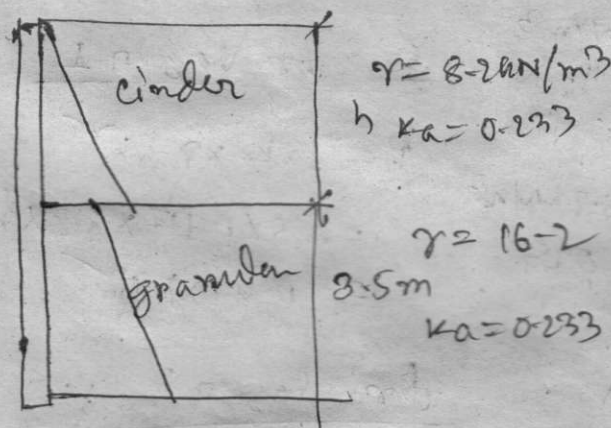 cinder
γ= 8-2kN/m3
h Ka= 0.233
γ= 16-2
granular 3.5m
Ka= 0.233